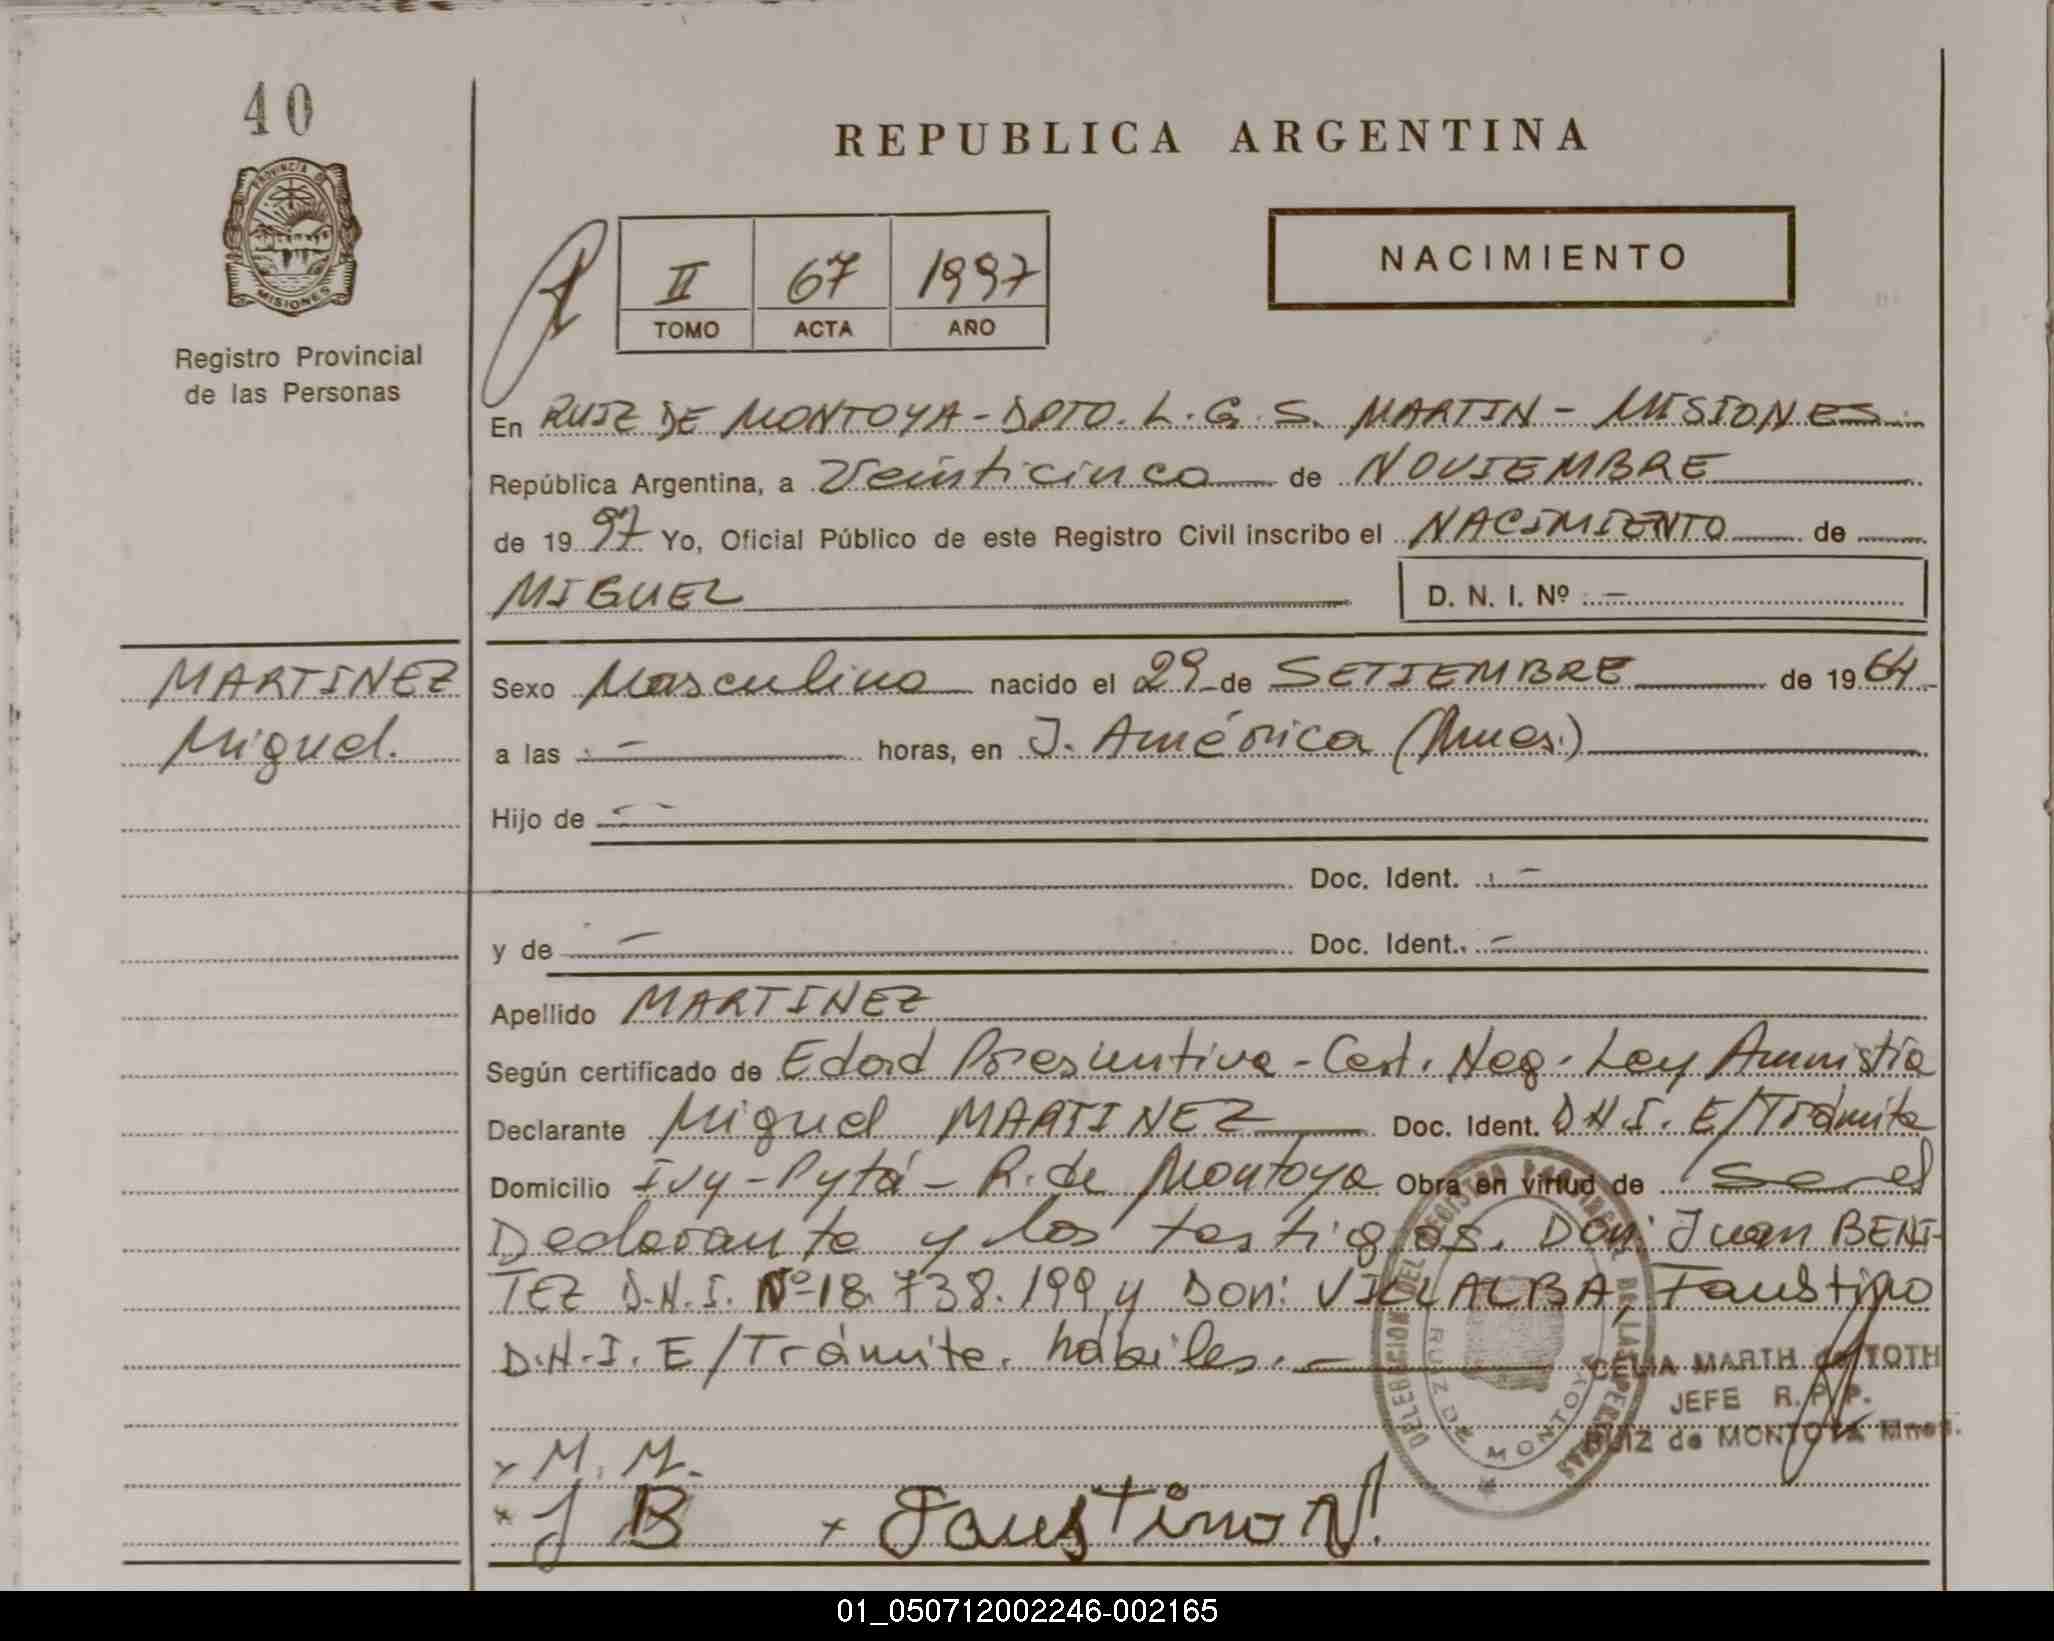 40
REPUBLICA ARGENTINA
PROVINCIA DE
MISIONES
Registro Provincial
de las Personas
II 67 1997
TOMO ACTA AÑO
NACIMIENTO
En RUIZ DE MONTOYA - DPTO. L. G. S. MARTIN - MISIONES
República Argentina, a Veinticinco de NOVIEMBRE
de 1997 Yo, Oficial Público de este Registro Civil inscribo el NACIMIENTO de
MIGUEL D. N. I. Nº -
MARTINEZ
Miguel.
Sexo Masculino nacido el 29 de SETIEMBRE de 1964
a las - horas, en J. América (Mnes.)
Hijo de
Doc. Ident. -
y de - Doc. Ident. -
Apellido MARTINEZ
Según certificado de Edad Presuntiva - Cert. Neg. Ley Amnistía
Declarante Miguel MARTINEZ Doc. Ident. D.N.I. E/Trámite
Domicilio Ivy - Pytá - R. de Montoya Obra en virtud de ser el
Declarante y los testigos. Don: Juan BENI-
TEZ D.N.I. Nº 18.738.199 y Don: VILLALBA, Faustino
D.N.I. E/Trámite. hábiles. -
DELEGACION DEL REGISTRO PROVINCIAL DE LAS PERSONAS
RUIZ DE MONTOYA
CELIA MARTH de TOTH
JEFE R. P. P.
RUIZ de MONTOYA Mnes.
x M. M.
x J B x Faustino V.
01_050712002246-002165